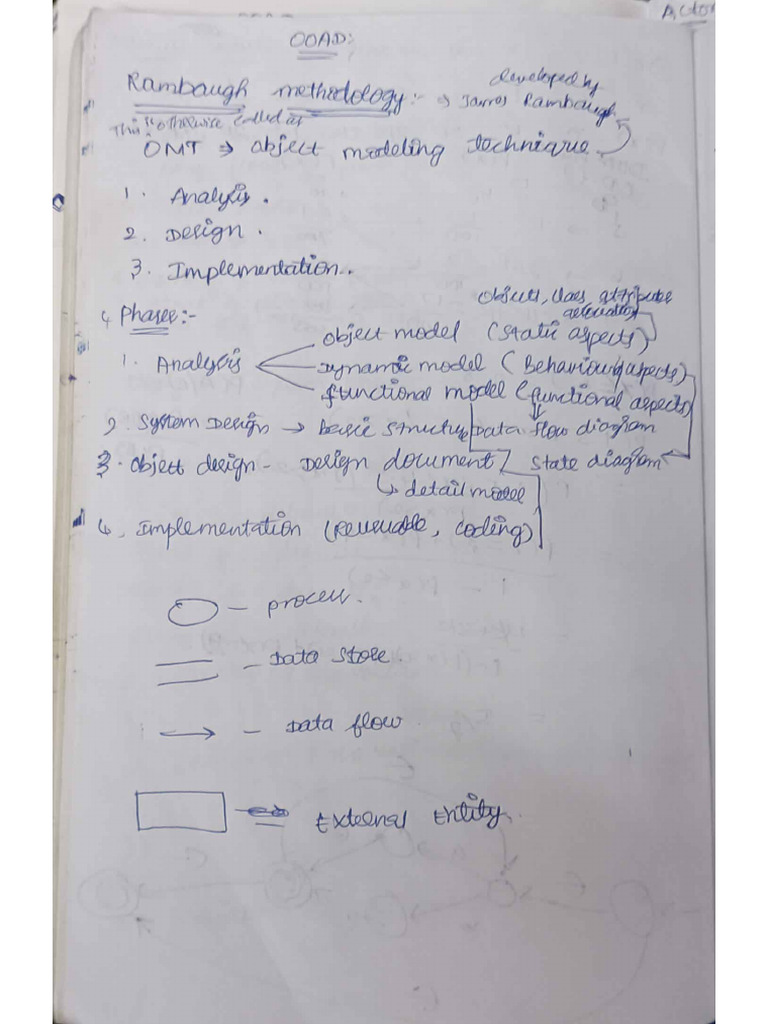 OOAD:
Rambaugh methodology:- → James Rambaugh
developed by
This is otherwise called as
OMT ⇒ object modeling technique
1. Analysis.
2. Design.
3. Implementation.
4 Phases:-
objects, class, attribute
1. Analysis
object model (static aspects)
Dynamic model (Behaviour aspects)
functional model (functional aspects)
2. System Design → basic structure
Data flow diagram
3. object design - Design document
State diagram
↳ detail model
4. Implementation (reusable, coding)
- process.
- Data store.
- Data flow
External Entity.